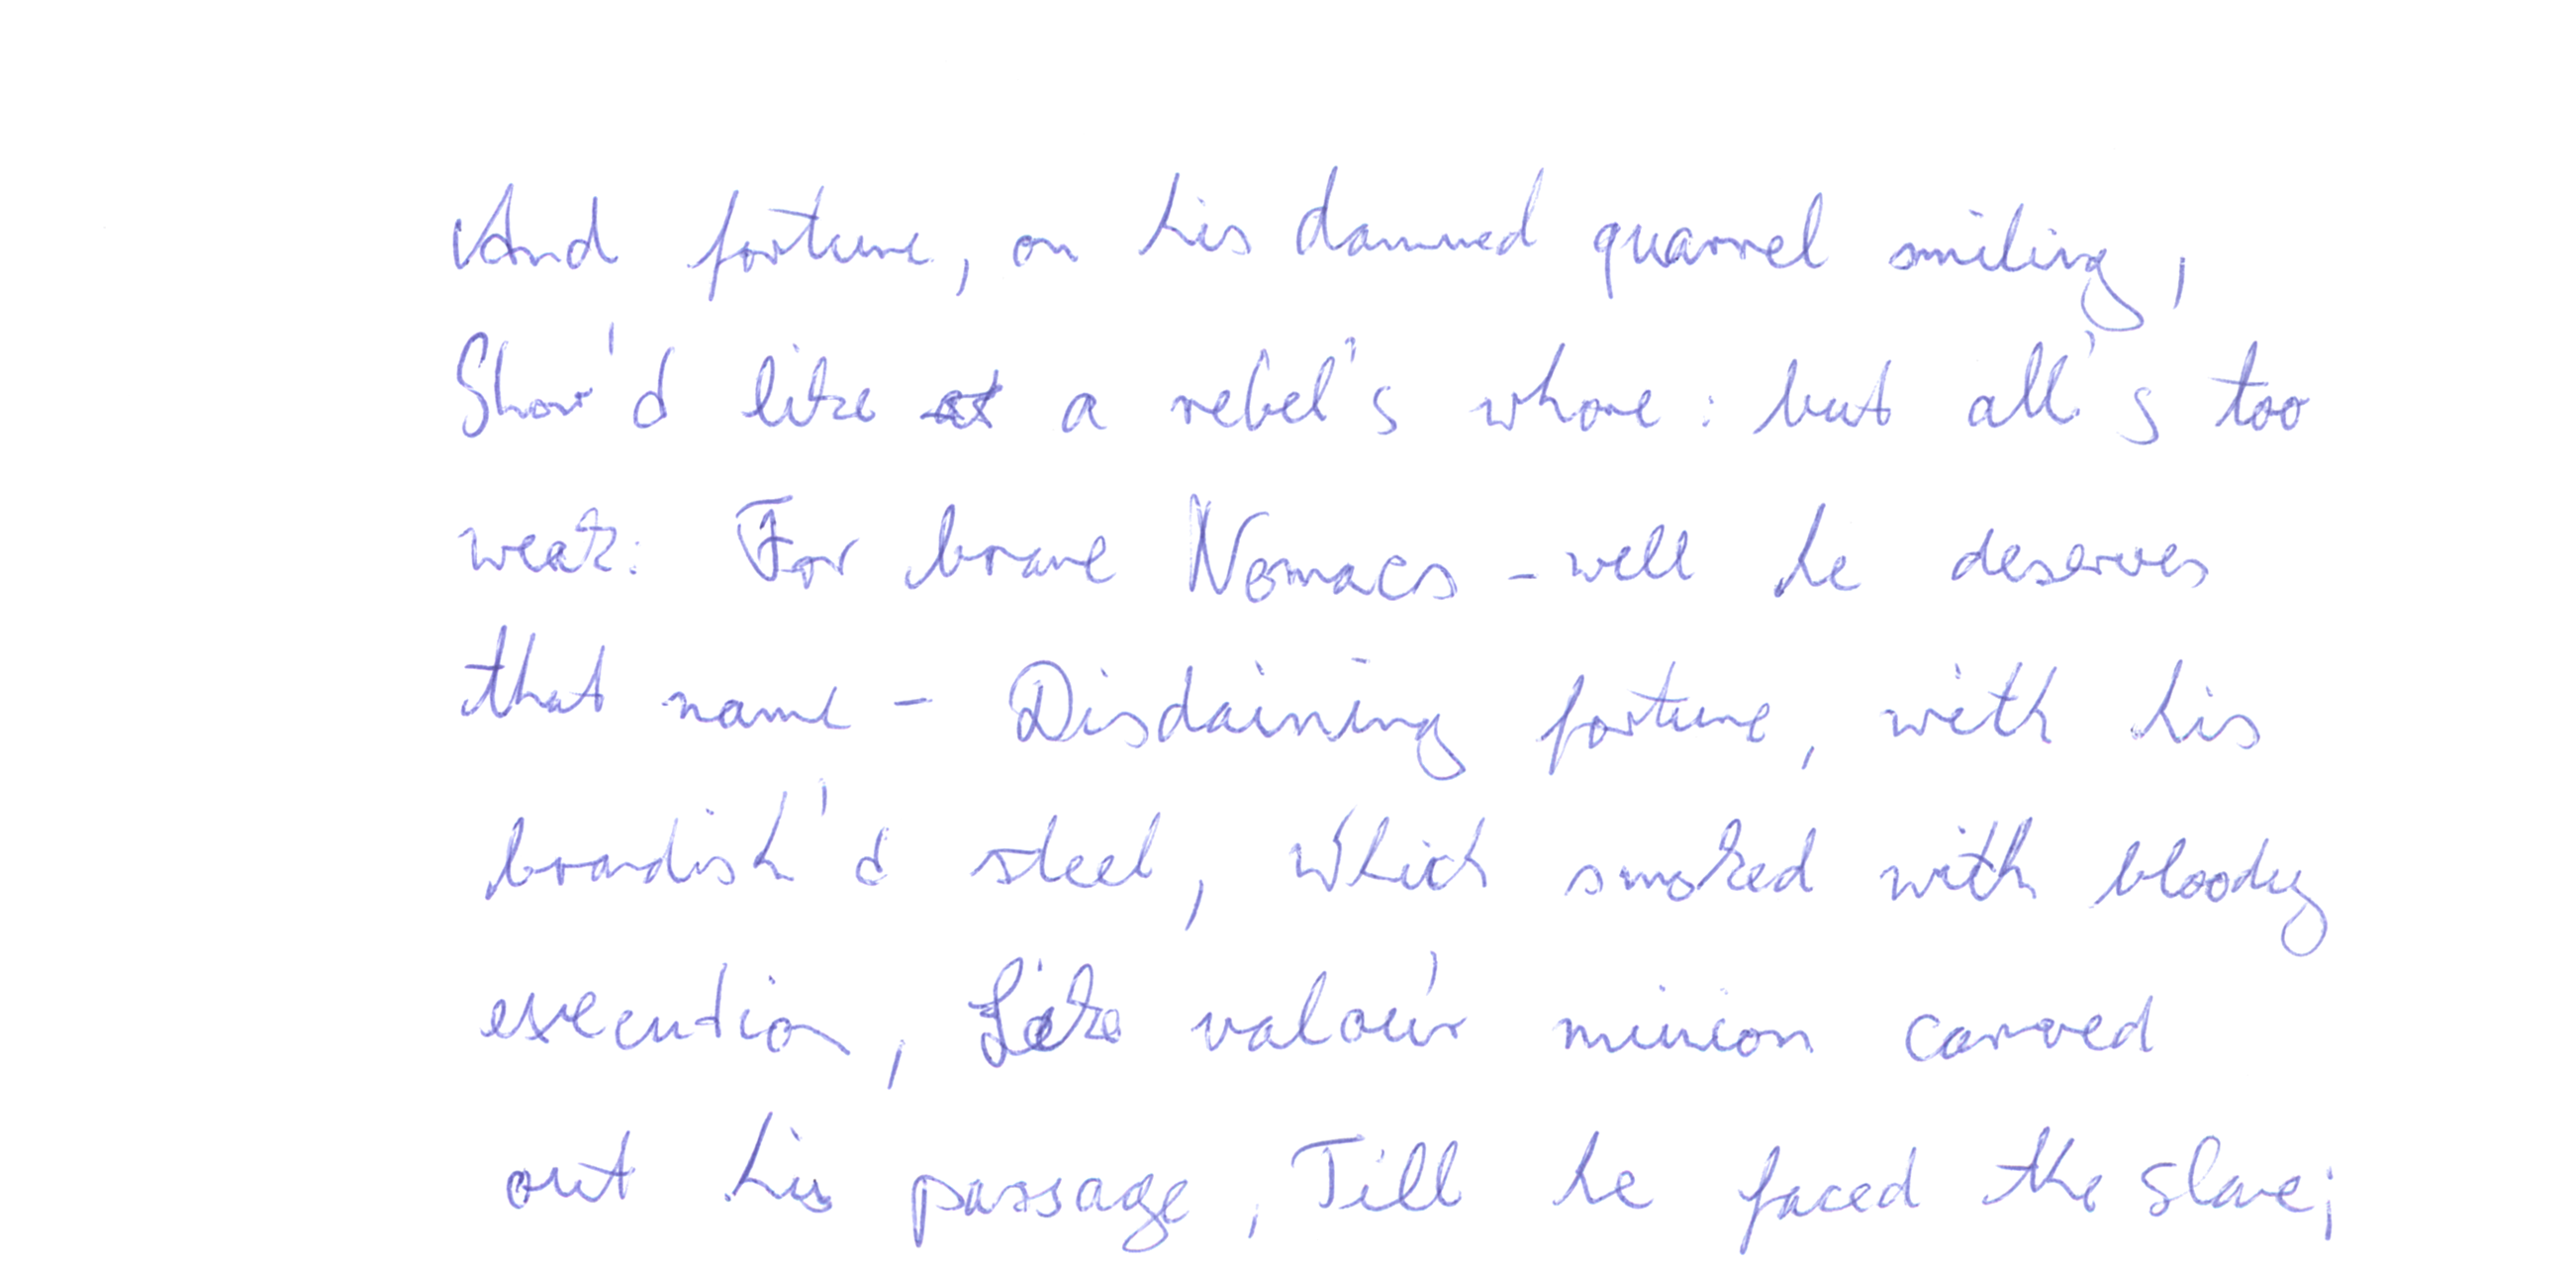 And fortune, on his damned quarrel smiling,
Show'd like a rebel's whore: but all's too
weak: For brave Nomacs - well he deserves
that name - Disdaining fortune, with his
brandish'd steel, Which smoked with bloody
execution, Like valour's minion carved
out his passage, Till he faced the slave;